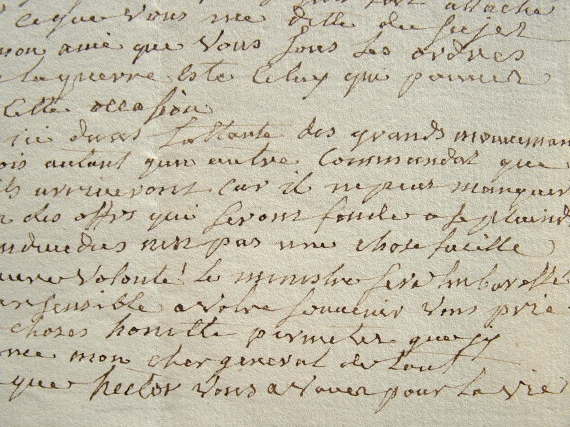 ce que vous me ditte du sujet
mon amie que vous sous les ordres
la guerre este celuy qui
cette occasion
ici dans lattante des grands mouvemen
autant qun autre commandat que
ils arriveront car il ne peut manquer
des offrs qui seront fondé a se plaindr
nest pas une chose facille
volonté le ministre sera
sensible a votre souvenir vous prie
choses honette permeter que jy
mon cher general de tout
que hector vous a vouer pour la vie